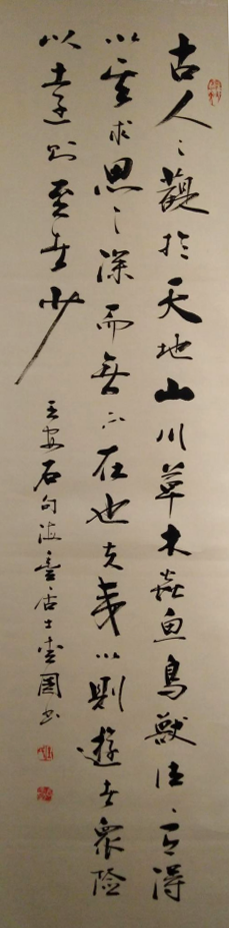 古人之觀於天地山川草木蟲魚鳥獸往往有得
以其求思之深而無不在也夫夷以則遊者眾險
以遠則至者少
王安石句居士國書